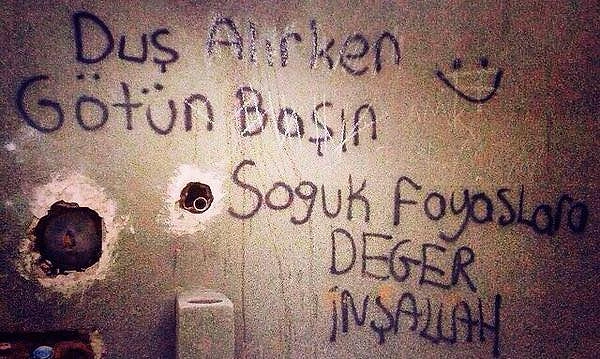 Duş Alırken
Götün Başın
Soğuk Fayaslara
DEĞER
İNŞALLAH